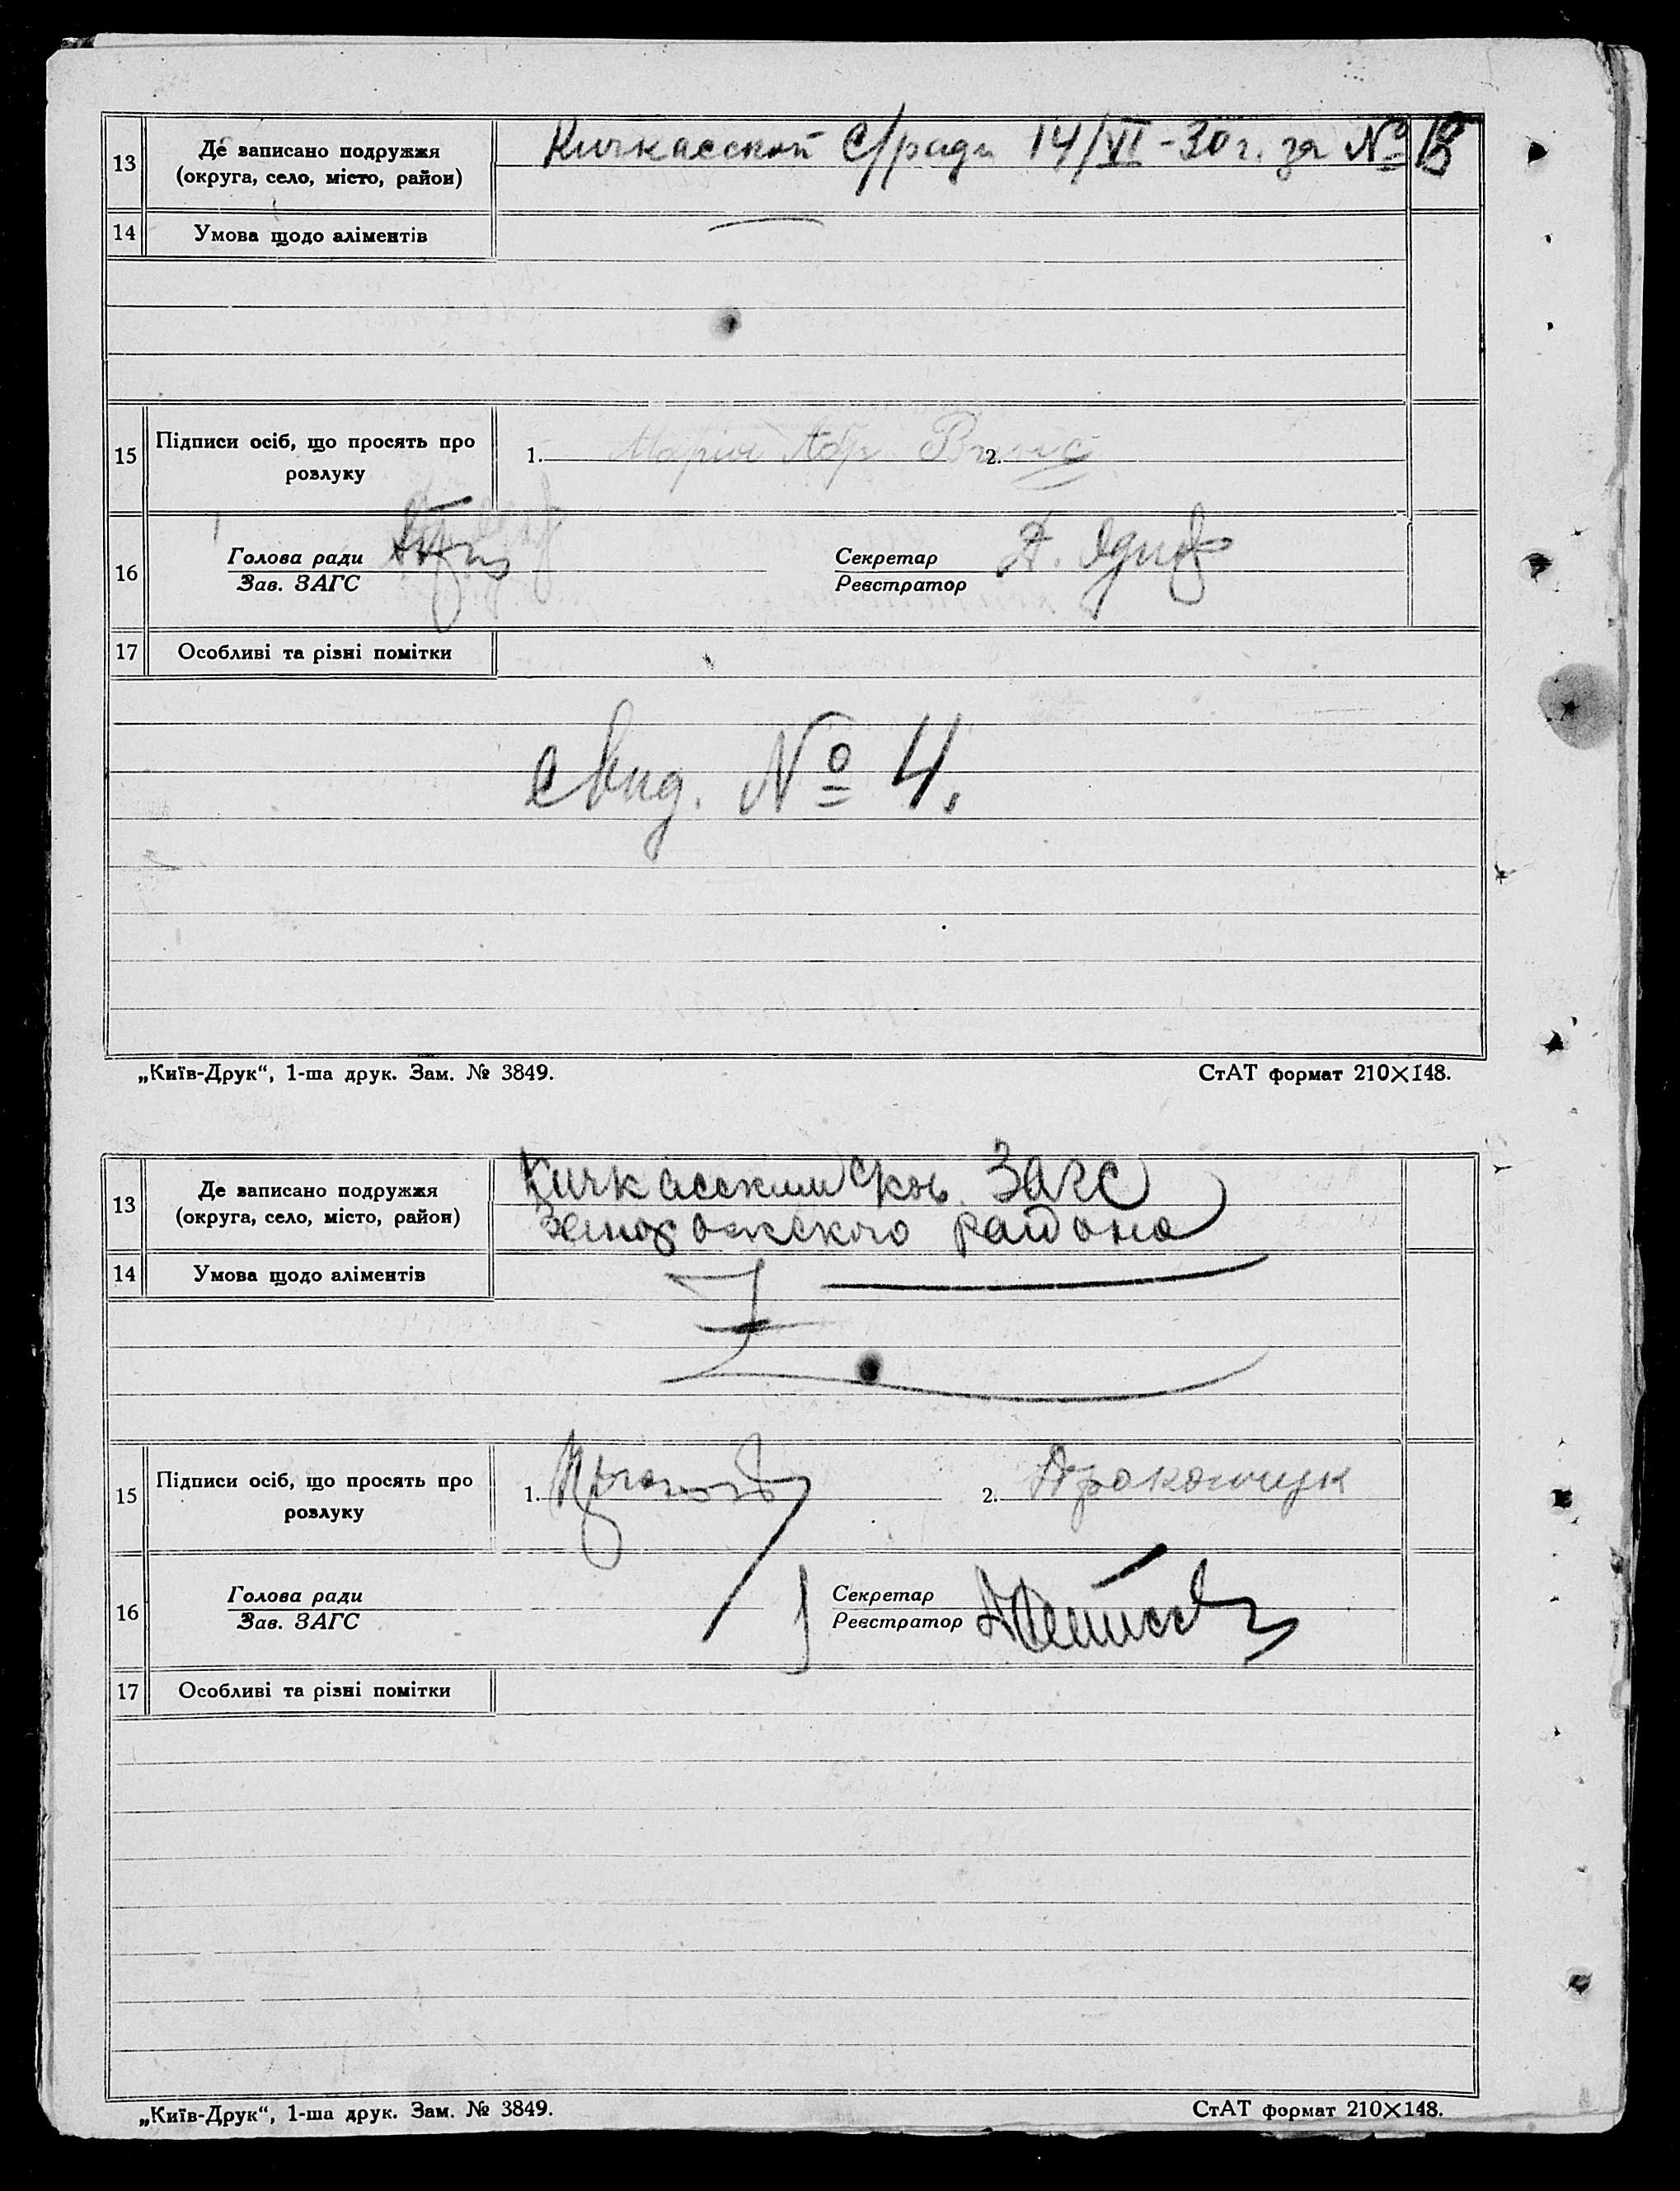 13
Де записано подружжя
(округа, село, місто, район)
Кичкасской С/ради 14/VI-30 г. за №
14
Умова щодо аліментів
15
Підписи осіб, що просять про
розлуку
1. Марія Абр
2.
16
Голова ради
Зав. ЗАГС
Секретар
Реєстратор
17
Особливі та різні помітки
свид. № 4.
„Київ-Друк“, 1-ша друк. Зам. № 3849.
СтАТ формат 210×148.
13
Де записано подружжя
(округа, село, місто, район)
Кичкасским ЗАГС
Запорожского района
14
Умова щодо аліментів
15
Підписи осіб, що просять про
розлуку
1.
2.
16
Голова ради
Зав. ЗАГС
Секретар
Реєстратор
17
Особливі та різні помітки
„Київ-Друк“, 1-ша друк. Зам. № 3849.
СтАТ формат 210×148.